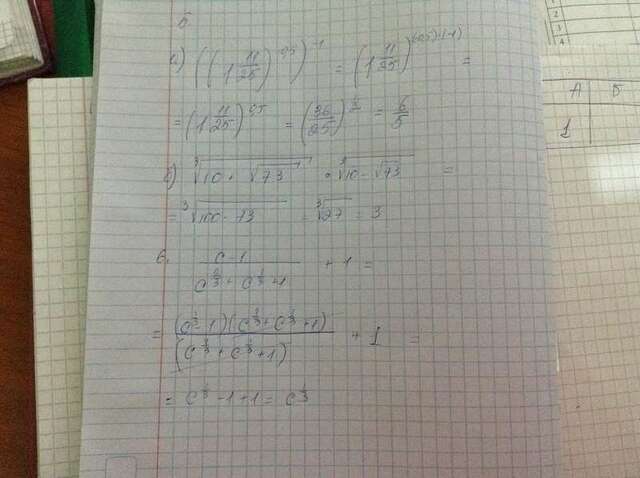 5
а) ((1 11/25)^0,5)^-1 = (1 11/25)^(-0,5)·(-1) =
= (1 11/25)^0,5 = (36/25)^1/2 = 6/5
б) ∛(10 + √73) · ∛(10 - √73) =
= ∛(100 - 73) = ∛27 = 3
6. (c - 1)/(c^2/3 + c^1/3 + 1) + 1 =
= (c^1/3 - 1)(c^2/3 + c^1/3 + 1)/(c^2/3 + c^1/3 + 1) + 1 =
= c^1/3 - 1 + 1 = c^1/3
1
3
4
А Б
1